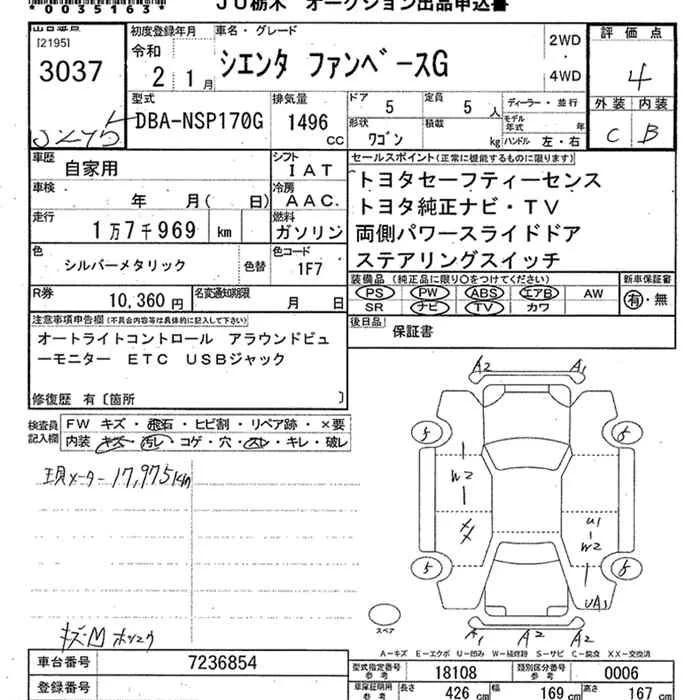 *0035163*
JU栃木 オークション出品申込書
出品番号
[2195]
3037
初度登録年月
令和
2年 1月
車名・グレード
シエンタ ファンベースG
2WD
4WD
評価点
4
外装 内装
C B
型式
DBA-NSP170G
排気量
1496
cc
ドア
5
定員
5 人
ディーラー・並行
形状
ワゴン
積載
kg
モデル年式 年
ハンドル 左・右
車歴
自家用
シフト
IAT
車検
年 月( 日)
冷房
AAC
走行
1万7千969 km
燃料
ガソリン
色
シルバーメタリック
色替
色コード
1F7
R券
10,360円
名変通知期限
月 日
セールスポイント(正常に機能するものに限ります)
トヨタセーフティーセンス
トヨタ純正ナビ・TV
両側パワースライドドア
ステアリングスイッチ
装備品 (純正品に限り○をつけてください)
PS PW ABS エアB AW
SR ナビ TV カワ
新車保証書
有・無
後日品
保証書
注意事項申告欄(不具合内容等は具体的に記入して下さい)
オートライトコントロール アラウンドビュ
ーモニター ETC USBジャック
修復歴 有〔箇所 〕
検査員
記入欄
FW キズ・飛石・ヒビ割・リペア跡・×要
内装 キズ・汚レ・コゲ・穴・スレ・キレ・破レ
現メーター 17,975km
A2 A1
5 5
W2
U1
W2
5 5
UA1
スペア
A1 A2 A2
A−キズ E−エクボ U−凹み W−補修跡 S−サビ C−腐食 XX−交換済
車台番号
7236854
登録番号
型式指定番号
参考
18108
類別区分番号
参考
0006
車庫証明用
参考
長さ
426 cm
幅
169 cm
高さ
167 cm